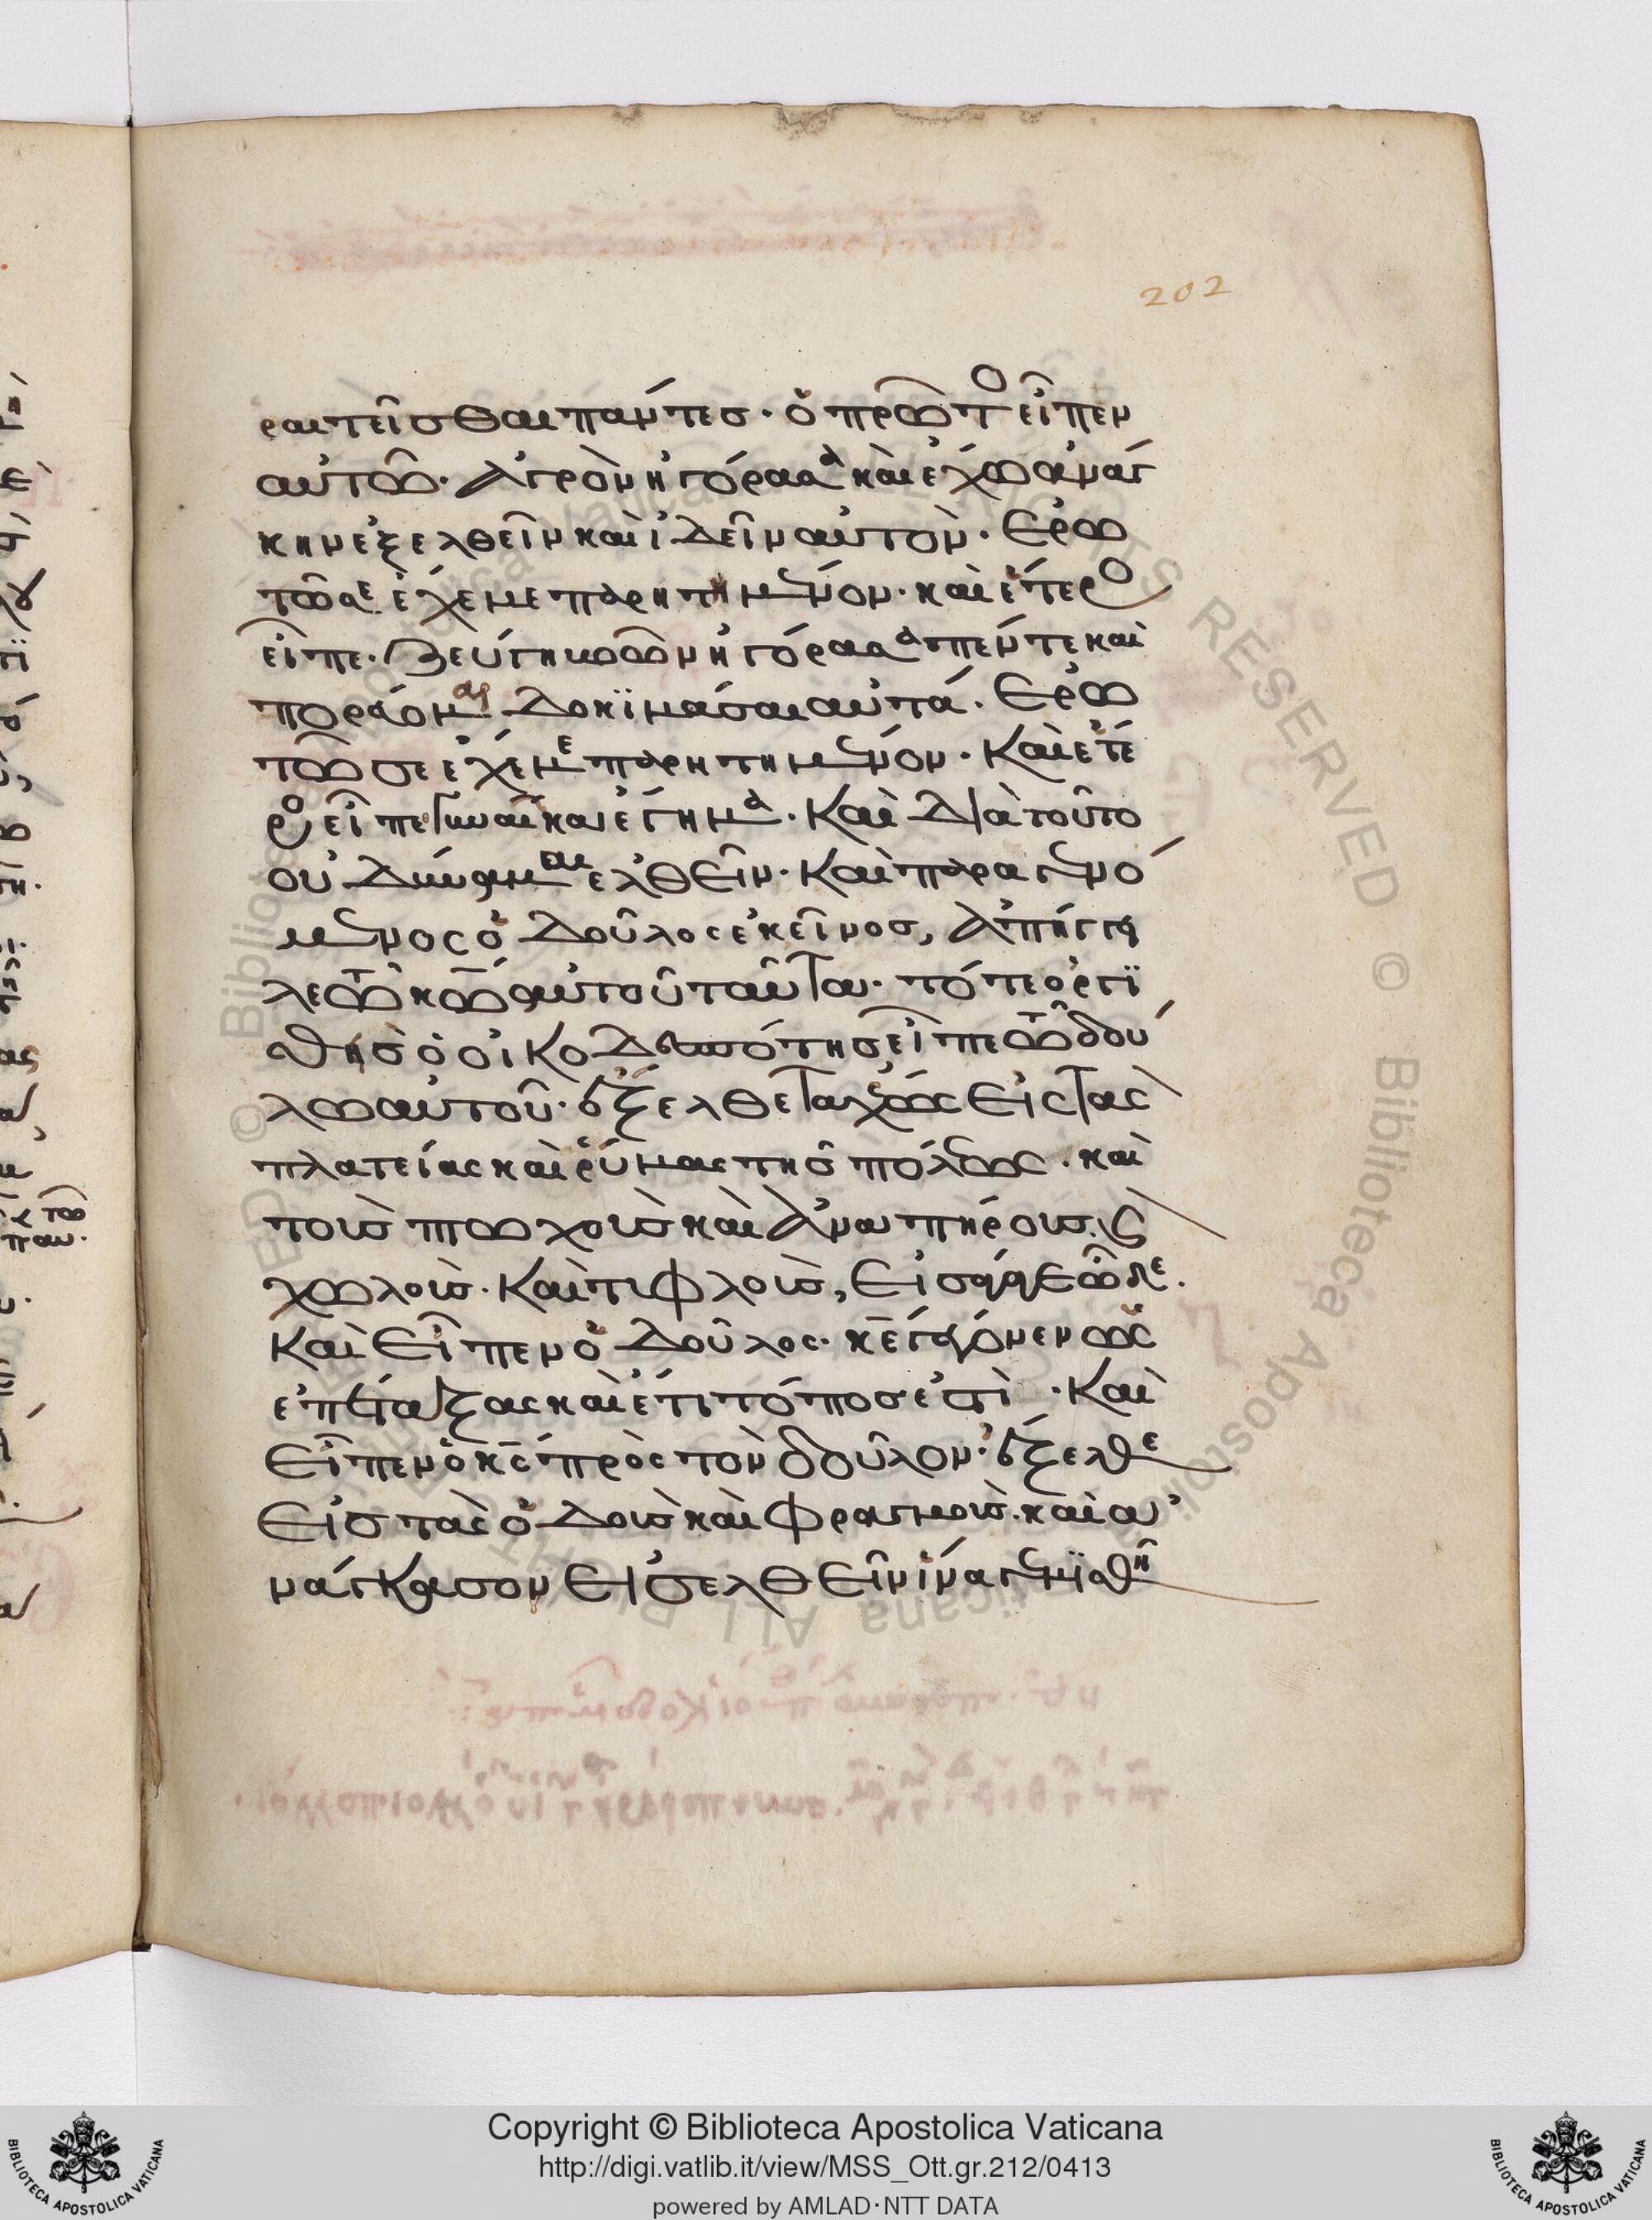 202
ραιτεῖσθαι πάντες· ὁ πρῶτο εἶπεν
αὐτῶ· ἀγρὸν ἠγόρασα καὶ ἔχω ἀνάγ
κην ἐξελθεῖν καὶ ἰδεῖν αὐτόν· ἐρω
τῶ σε ἔχε με παρητημένον· καὶ ἕτερο
εἶπε· ζεύγη βοῶν ἠγόρασα πέντε καὶ
πορεύομαι δοκϊμάσαι αὐτά· ἐρω
τῶ σε ἔχε με παρητημένον· Καὶ ἕτε
ρο εἶπε γυναῖκα ἔγημα· Καὶ διὰ τοῦτο
οὐ δύναμαι ἐλθεῖν· Καὶ παραγενό
μενος ὁ δοῦλος ἐκεῖνος, ἀπήγγει
λε τῶ κω αὐτοῦ ταῦτα· τότε ὀργϊ
σθεὶς ὁ οἰκοδεσπότης εἶπε τῶ δού
λω αὐτοῦ· ἔξελθε ταχέως εἰς τὰς
πλατείας καὶ ῥύμας τῆς πόλεως· καὶ
τοὺς πτωχοὺς καὶ ἀναπήρους· καὶ
χωλοὺς· Καὶ τυφλοὺς, εἰσάγαγε ὧδε·
Καὶ εἶπεν ὁ δοῦλος· κε γέγονεν ὡς
ἐπέταξας καὶ ἔτι τόπος ἐστὶ· Καὶ
εἶπεν ὁ κς πρὸς τὸν δοῦλον· ἔξελθε
εἰς τὰς ὁδοὺς καὶ φραγμοὺς· καὶ ἀ
νάγκασον εἰσελθεῖν ἵνα γεμϊσθῆ
Copyright © Biblioteca Apostolica Vaticana
http://digi.vatlib.it/view/MSS_Ott.gr.212/0413
powered by AMLAD·NTT DATA
BIBLIOTECA APOSTOLICA VATICANA
BIBLIOTECA APOSTOLICA VATICANA